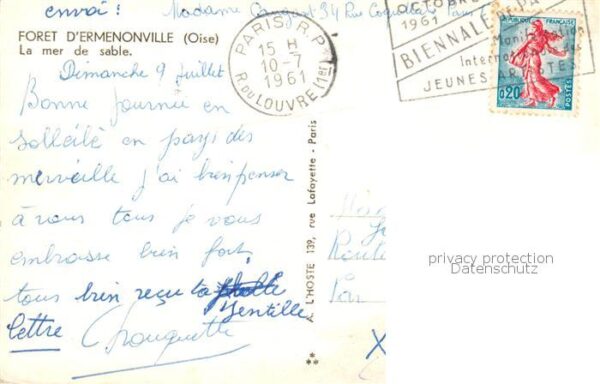 envoi : Madame 34 Rue
FORET D'ERMENONVILLE (Oise)
La mer de sable.
Dimanche 9 Juillet
Bonne Journée en
solleilé en pays des
merveille j'ai bien penser
à vous tous je vous
embrasse bien fort
tous bien reçu ta
Gentille
lettre
PARIS R.P.
15 H
10-7
1961
R. DU LOUVRE (1er)
OCTOBRE
1961
BIENNALE DE PA
Manifestation
Internationale des
JEUNES ARTISTES
REPUBLIQUE FRANÇAISE
0,20
POSTES
A. L'HOSTE 139, rue Lafayette - Paris
Route
privacy protection
Datenschutz